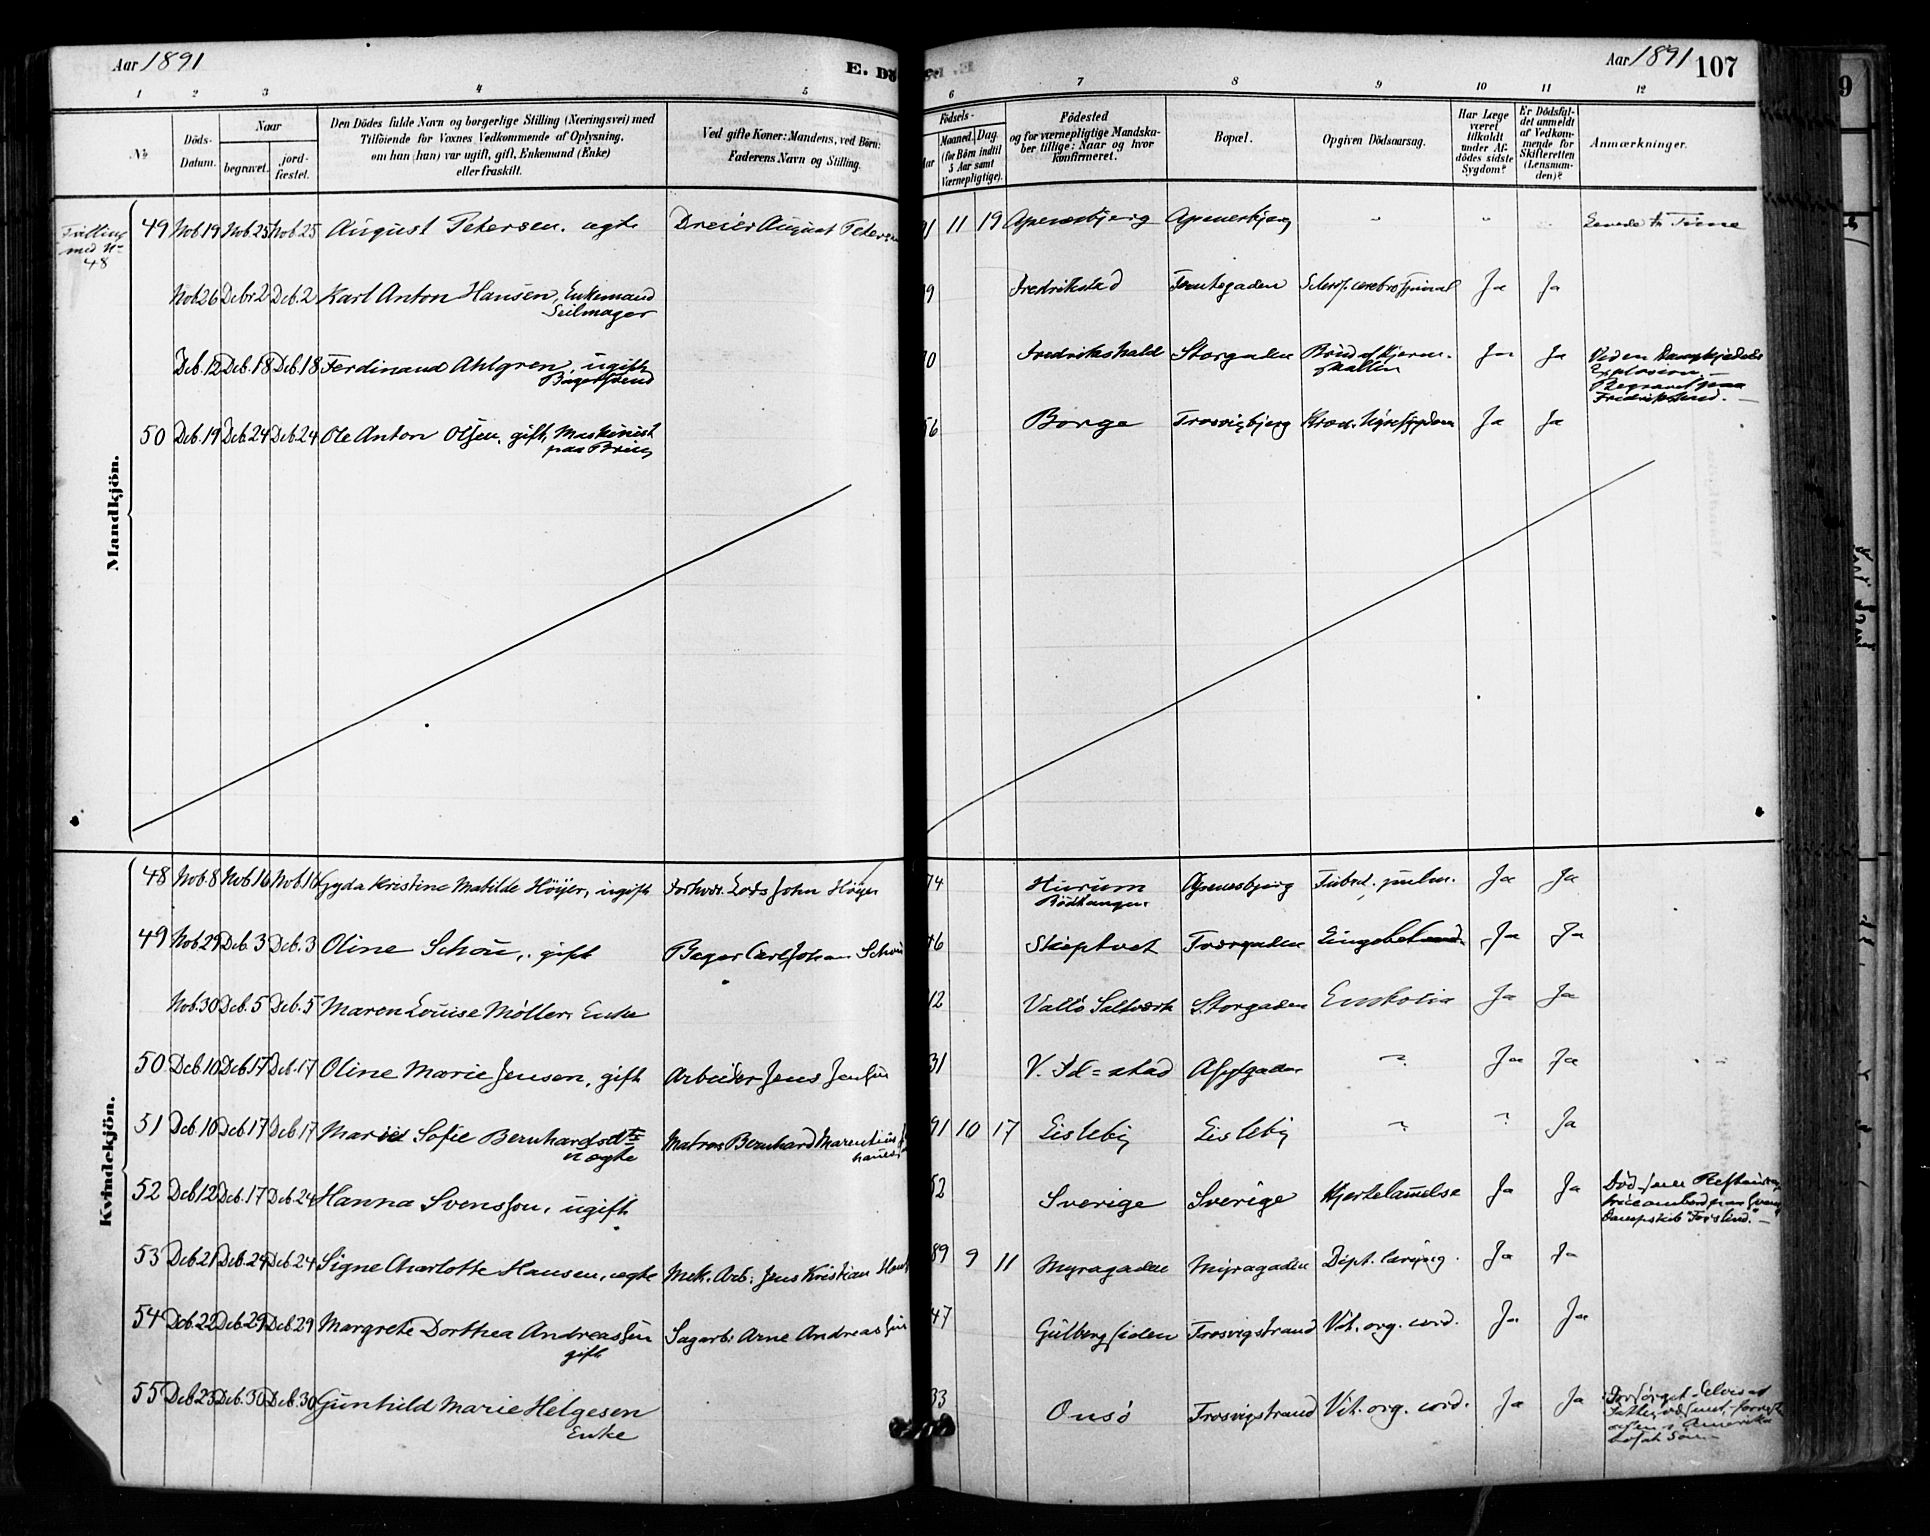 Aar 1891
E. Dö
Aar 1891 107
1 2 3 4 5 6 7 8 9 10 11 12
№
Döds-Datum.
Naar
begravet.
jord-fæstet.
Den Dödes fulde Navn og borgerlige Stilling (Næringsvei) med
Tilföiende for Voxnes Vedkommende af Oplysning,
om han (hun) var ugift, gift, Enkemand (Enke)
eller fraskilt.
Ved gifte Koner: Mandens, ved Börn:
Faderens Navn og Stilling.
Födsels-
Aar
Maaned. Dag.
(for Börn indtil
5 Aar samt
Værnepligtige).
Födested
og for værnepligtige Mandska-
ber tillige: Naar og hvor
konfirmeret.
Bopæl.
Opgiven Dödsaarsag.
Har Læge
været
tilkaldt
under Af-
dödes sidste
Sygdom?
Er Dödsfal-
det anmeldt
af Vedkom-
mende for
Skifteretten
(Lensman-
den)?
Anmærkninger.
Mandkjön.
Tvilling
med No
48
49 Nob. 19 Nob. 25 Nob. 25 August Petersen. ægte Dreier August Petersen 91 11 19 Apenesbjerg Apenesbjerg " " Levede ½ Time
Nob. 26 Debr. 2 Deb. 2 Karl Anton Hansen, Enkemand
Seilmager
9 Fredrikstad Scleros. cerebrospinal Ja Ja
Deb. 12 Deb. 18 Deb. 18 Ferdinand Ahlgren, ugift
0 Fredrikshald Storgaden Brud af Hjerne-
skallen
Ja Ja Ved en Dampkjedels
Explosion.
Begravet paa
50 Deb. 19 Deb. 24 Deb. 24 Ole Anton Olsen, gift, Maskinist
56 Borge Trosvigbjerg Kron. Nyresygdom Ja Ja
Kvindekjön.
48 Nob. 8 Nob. 16 Nob. 16 Gyda Kristine Matilde Höyer, ugift Forhvv. Lods John Höyer 74 Hurum
Rödtangen
Apenesbjerg Tuberk. pulm. Ja Ja
49 Nob. 29 Deb. 3 Deb. 3 Oline Schou, gift Bager Carl Johan Schou 46 Skieptvet Tværgaden Lungebetænd. Ja Ja
Nob. 30 Deb. 5 Deb. 5 Maren Louise Møller, Enke 12 Vallö Saltværk Storgaden Ja Ja
50 Deb. 10 Deb. 17 Deb. 17 Oline Marie Jensen, gift Arbeider Jens Jensen 31 V. Fd=stad Asylgaden " Ja Ja
51 Deb. 10 Deb. 17 Deb. 17 Marie Sofie Bernhardsdtr
uægte
Matros Bernhard Marentius
91 10 17 Lisleby Lisleby " " Ja
52 Deb. 12 Deb. 17 Deb. 24 Hanna Svensson, ugift 52 Sverige Sverige Hjertelammelse Ja Ja
53 Deb. 21 Deb. 24 Deb. 24 Signe Charlotte Hansen, ægte Mek. Arb. Jens Kristian Hans 89 9 11 Myragaden Myragaden Dipt. laryng. Ja Ja
54 Deb. 22 Deb. 29 Deb. 29 Margrete Dorthea Andreassen
gift
Sagarb. Arne Andreassen 47 Gulbergsiden Trosvigstrand Vit. org. cord. Ja Ja
55 Deb. 23 Deb. 30 Deb. 30 Gunhild Marie Helgesen
Enke
33 Onsö Trosvigstrand Vit. org. cord. Ja Ja